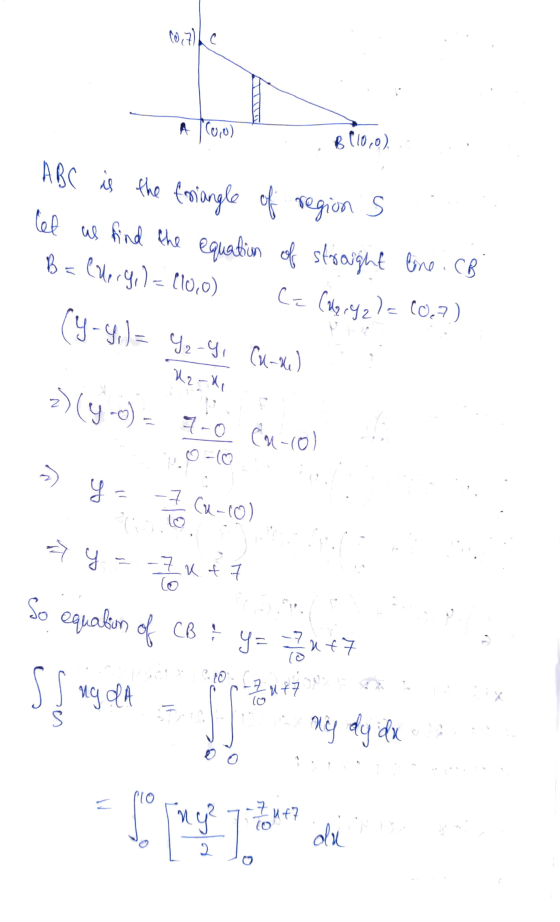 (0,7) C
A (0,0)
B (10,0)
ABC is the triangle of region S
let us find the equation of straight line CB
B = (x₁, y₁) = (10,0) C = (x₂, y₂) = (0,7)
(y-y₁) = y₂-y₁/x₂-x₁ (x-x₁)
⇒ (y-0) = 7-0/0-10 (x-10)
⇒ y = -7/10 (x-10)
⇒ y = -7/10 x + 7
So equation of CB : y = -7/10 x + 7
∬_S xy dA = ∫₀^10 ∫₀^(-7/10 x+7) xy dy dx
= ∫₀^10 [xy²/2]₀^(-7/10 x+7) dx